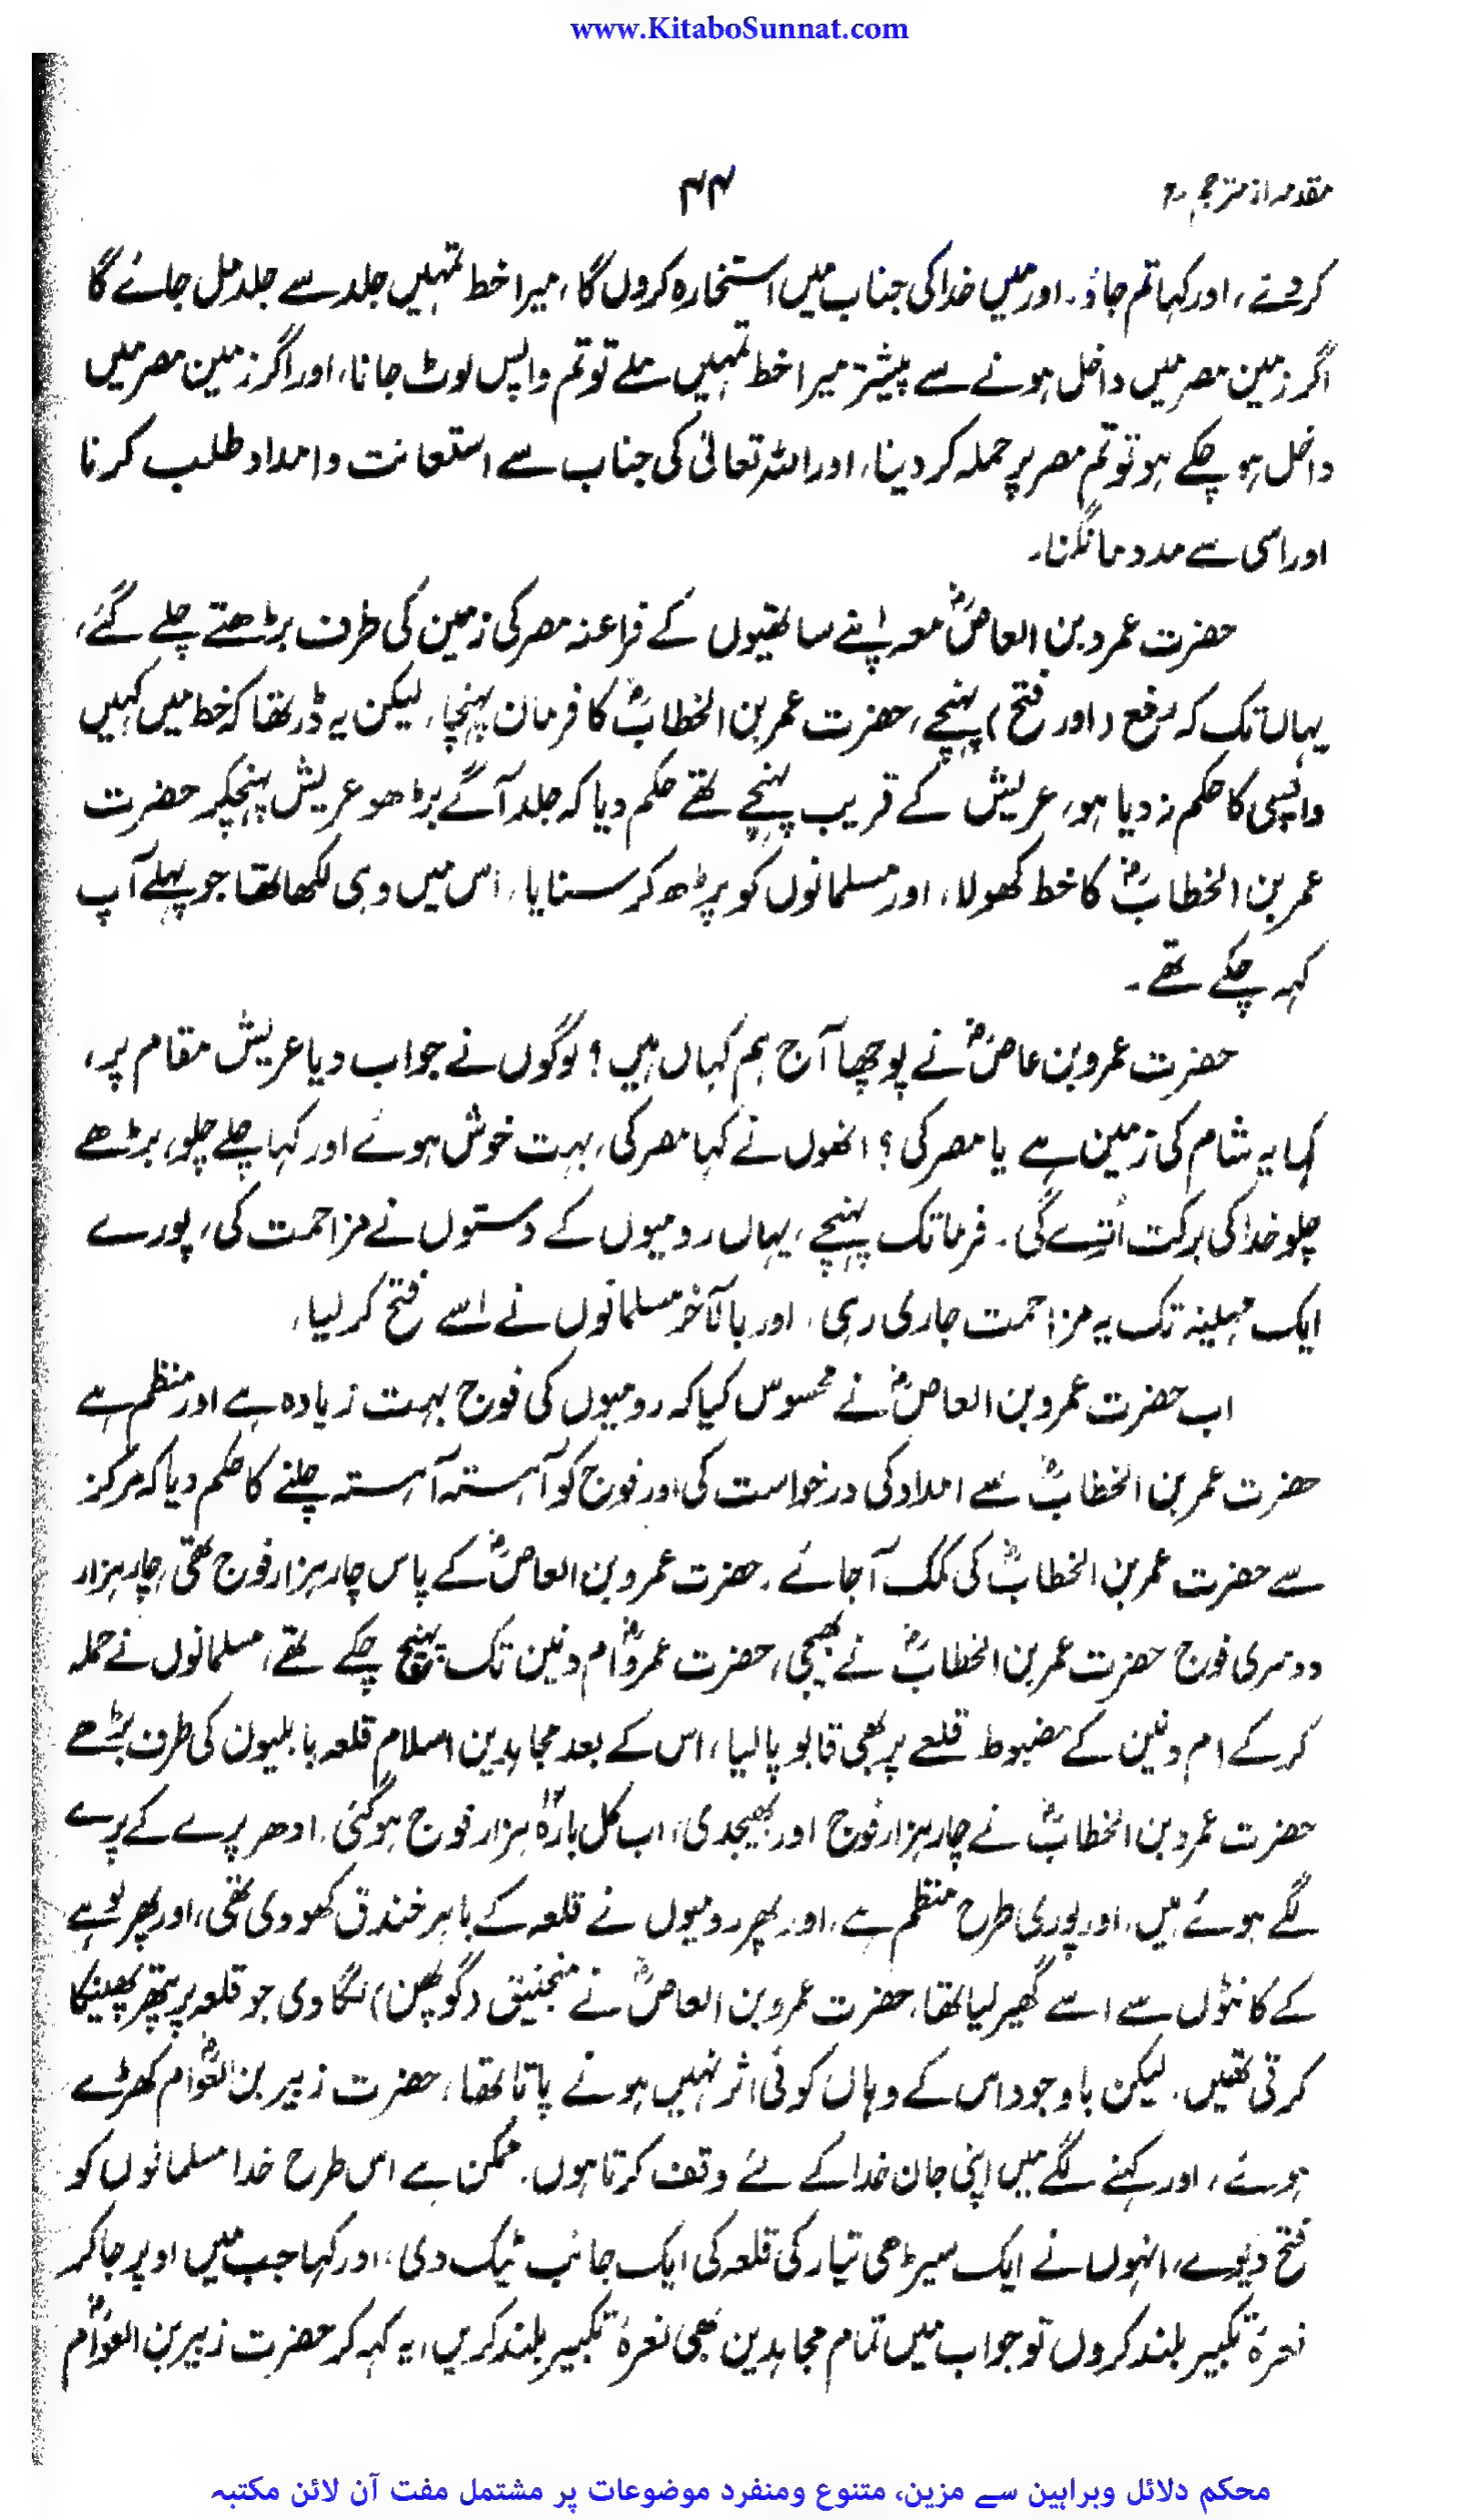 www.KitaboSunnat.com
مقدمہ از مترجم
۴۴
کردئے، اور کہا تم جاؤ، اور میں خدا کی جناب میں استخارہ کروں گا، میرا خط تمہیں جلد سے جلد مل جائے گا
اگر زمین مصر میں داخل ہونے سے پیشتر میرا خط تمہیں ملے تو تم واپس لوٹ جانا، اور اگر زمین مصر میں
داخل ہو چکے ہو تو تم مصر پر حملہ کر دینا، اور اللہ تعالیٰ کی جناب سے استعانت و امداد طلب کرنا
اور اسی سے مدد مانگنا۔
حضرت عمرو بن العاصؓ معہ اپنے ساتھیوں کے فراعنہ مصر کی زمین کی طرف بڑھتے چلے گئے،
یہاں تک کہ رفع (اور فتح) پہنچے، حضرت عمر بن الخطابؓ کا فرمان پہنچا، لیکن یہ ڈر تھا کہ خط میں کہیں
واپسی کا حکم نہ دیا ہو، عریش کے قریب پہنچے تھے حکم دیا کہ جلد آگے بڑھو عریش پہنچکر حضرت
عمر بن الخطابؓ کا خط کھولا، اور مسلمانوں کو پڑھ کر سنایا، اس میں وہی لکھا تھا جو پہلے آپ
کہہ چکے تھے۔
حضرت عمرو بن عاصؓ نے پوچھا آج ہم کہاں ہیں؟ لوگوں نے جواب دیا عریش مقام پر،
کہا یہ شام کی زمین ہے یا مصر کی؟ انھوں نے کہا مصر کی، بہت خوش ہوئے اور کہا چلے چلو، بڑھے
چلو خدا کی برکت اُترے گی۔ فرما تک پہنچے، یہاں رومیوں کے دستوں نے مزاحمت کی، پورے
ایک مہینہ تک یہ مزاحمت جاری رہی، اور بالآخر مسلمانوں نے اسے فتح کر لیا،
اب حضرت عمرو بن العاصؓ نے محسوس کیا کہ رومیوں کی فوج بہت زیادہ ہے اور منظم ہے
حضرت عمر بن الخطابؓ سے امداد کی درخواست کی اور فوج کو آہستہ آہستہ چلنے کا حکم دیا کہ مرکز
سے حضرت عمر بن الخطابؓ کی کمک آ جائے، حضرت عمرو بن العاصؓ کے پاس چار ہزار فوج تھی، چار ہزار
دوسری فوج حضرت عمر بن الخطابؓ نے بھیجی، حضرت عمروؓ ام دنین تک پہنچ چکے تھے، مسلمانوں نے حملہ
کر کے ام دنین کے مضبوط قلعے پر بھی قابو پا لیا، اس کے بعد مجاہدین اسلام قلعہ بابلیون کی طرف بڑھے
حضرت عمرد بن الخطابؓ نے چار ہزار فوج اور بھیجدی، اب کل بارہ ۱۲ ہزار فوج ہو گئی، ادھر پرے کے پرے
لگے ہوئے ہیں، اور پوری طرح منظم ہے، اور پھر رومیوں نے قلعہ کے باہر خندق کھودی تھی، اور پھر لوہے
کے کانٹوں سے اسے گھیر لیا تھا، حضرت عمرو بن العاصؓ نے منجنیق (گوپھن) لگا دی جو قلعہ پر پتھر پھینکا
کرتی تھیں، لیکن باوجود اس کے وہاں کوئی اثر نہیں ہونے پاتا تھا، حضرت زبیر بن العوّامؓ کھڑے
ہوئے، اور کہنے لگے میں اپنی جان خدا کے لئے وقف کرتا ہوں، ممکن ہے اس طرح خدا مسلمانوں کو
فتح دیوے، انہوں نے ایک سیڑھی تیار کی قلعہ کی ایک جانب ٹیک دی، اور کہا جب میں اوپر جا کر
نعرۂ تکبیر بلند کروں تو جواب میں تمام مجاہدین بھی نعرۂ تکبیر بلند کریں، یہ کہہ کر حضرت زبیر بن العوامؓ
محکم دلائل وبراہین سے مزین، متنوع ومنفرد موضوعات پر مشتمل مفت آن لائن مکتبہ